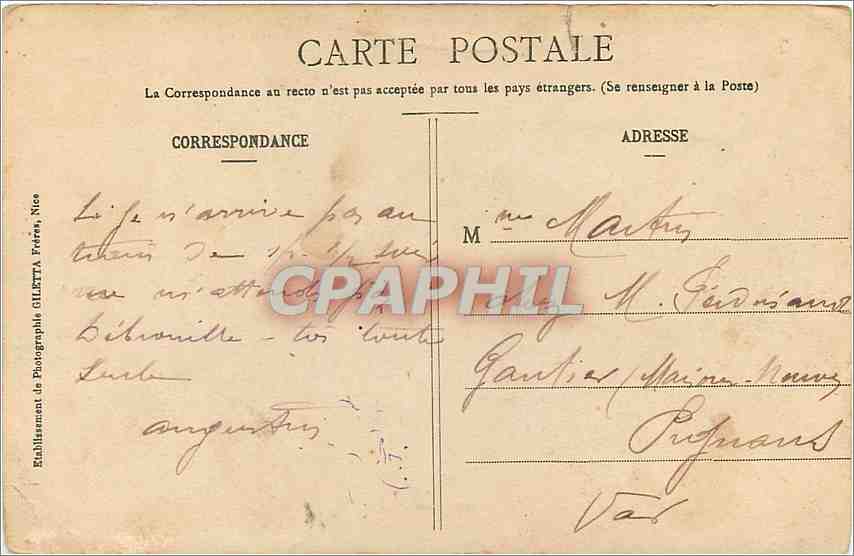 CARTE POSTALE
La Correspondance au recto n'est pas acceptée par tous les pays étrangers. (Se renseigner à la Poste)
CORRESPONDANCE
Si je n'arrive pas au
train de
ne m'attends pas
Débrouille-toi toute
Seule
augustin
ADRESSE
Mme Martin
chez M. Ferdinand
Gautier, Maison-Neuve
Pignans
Var
Etablissement de Photographie GILETTA Frères, Nice
CPAPHIL